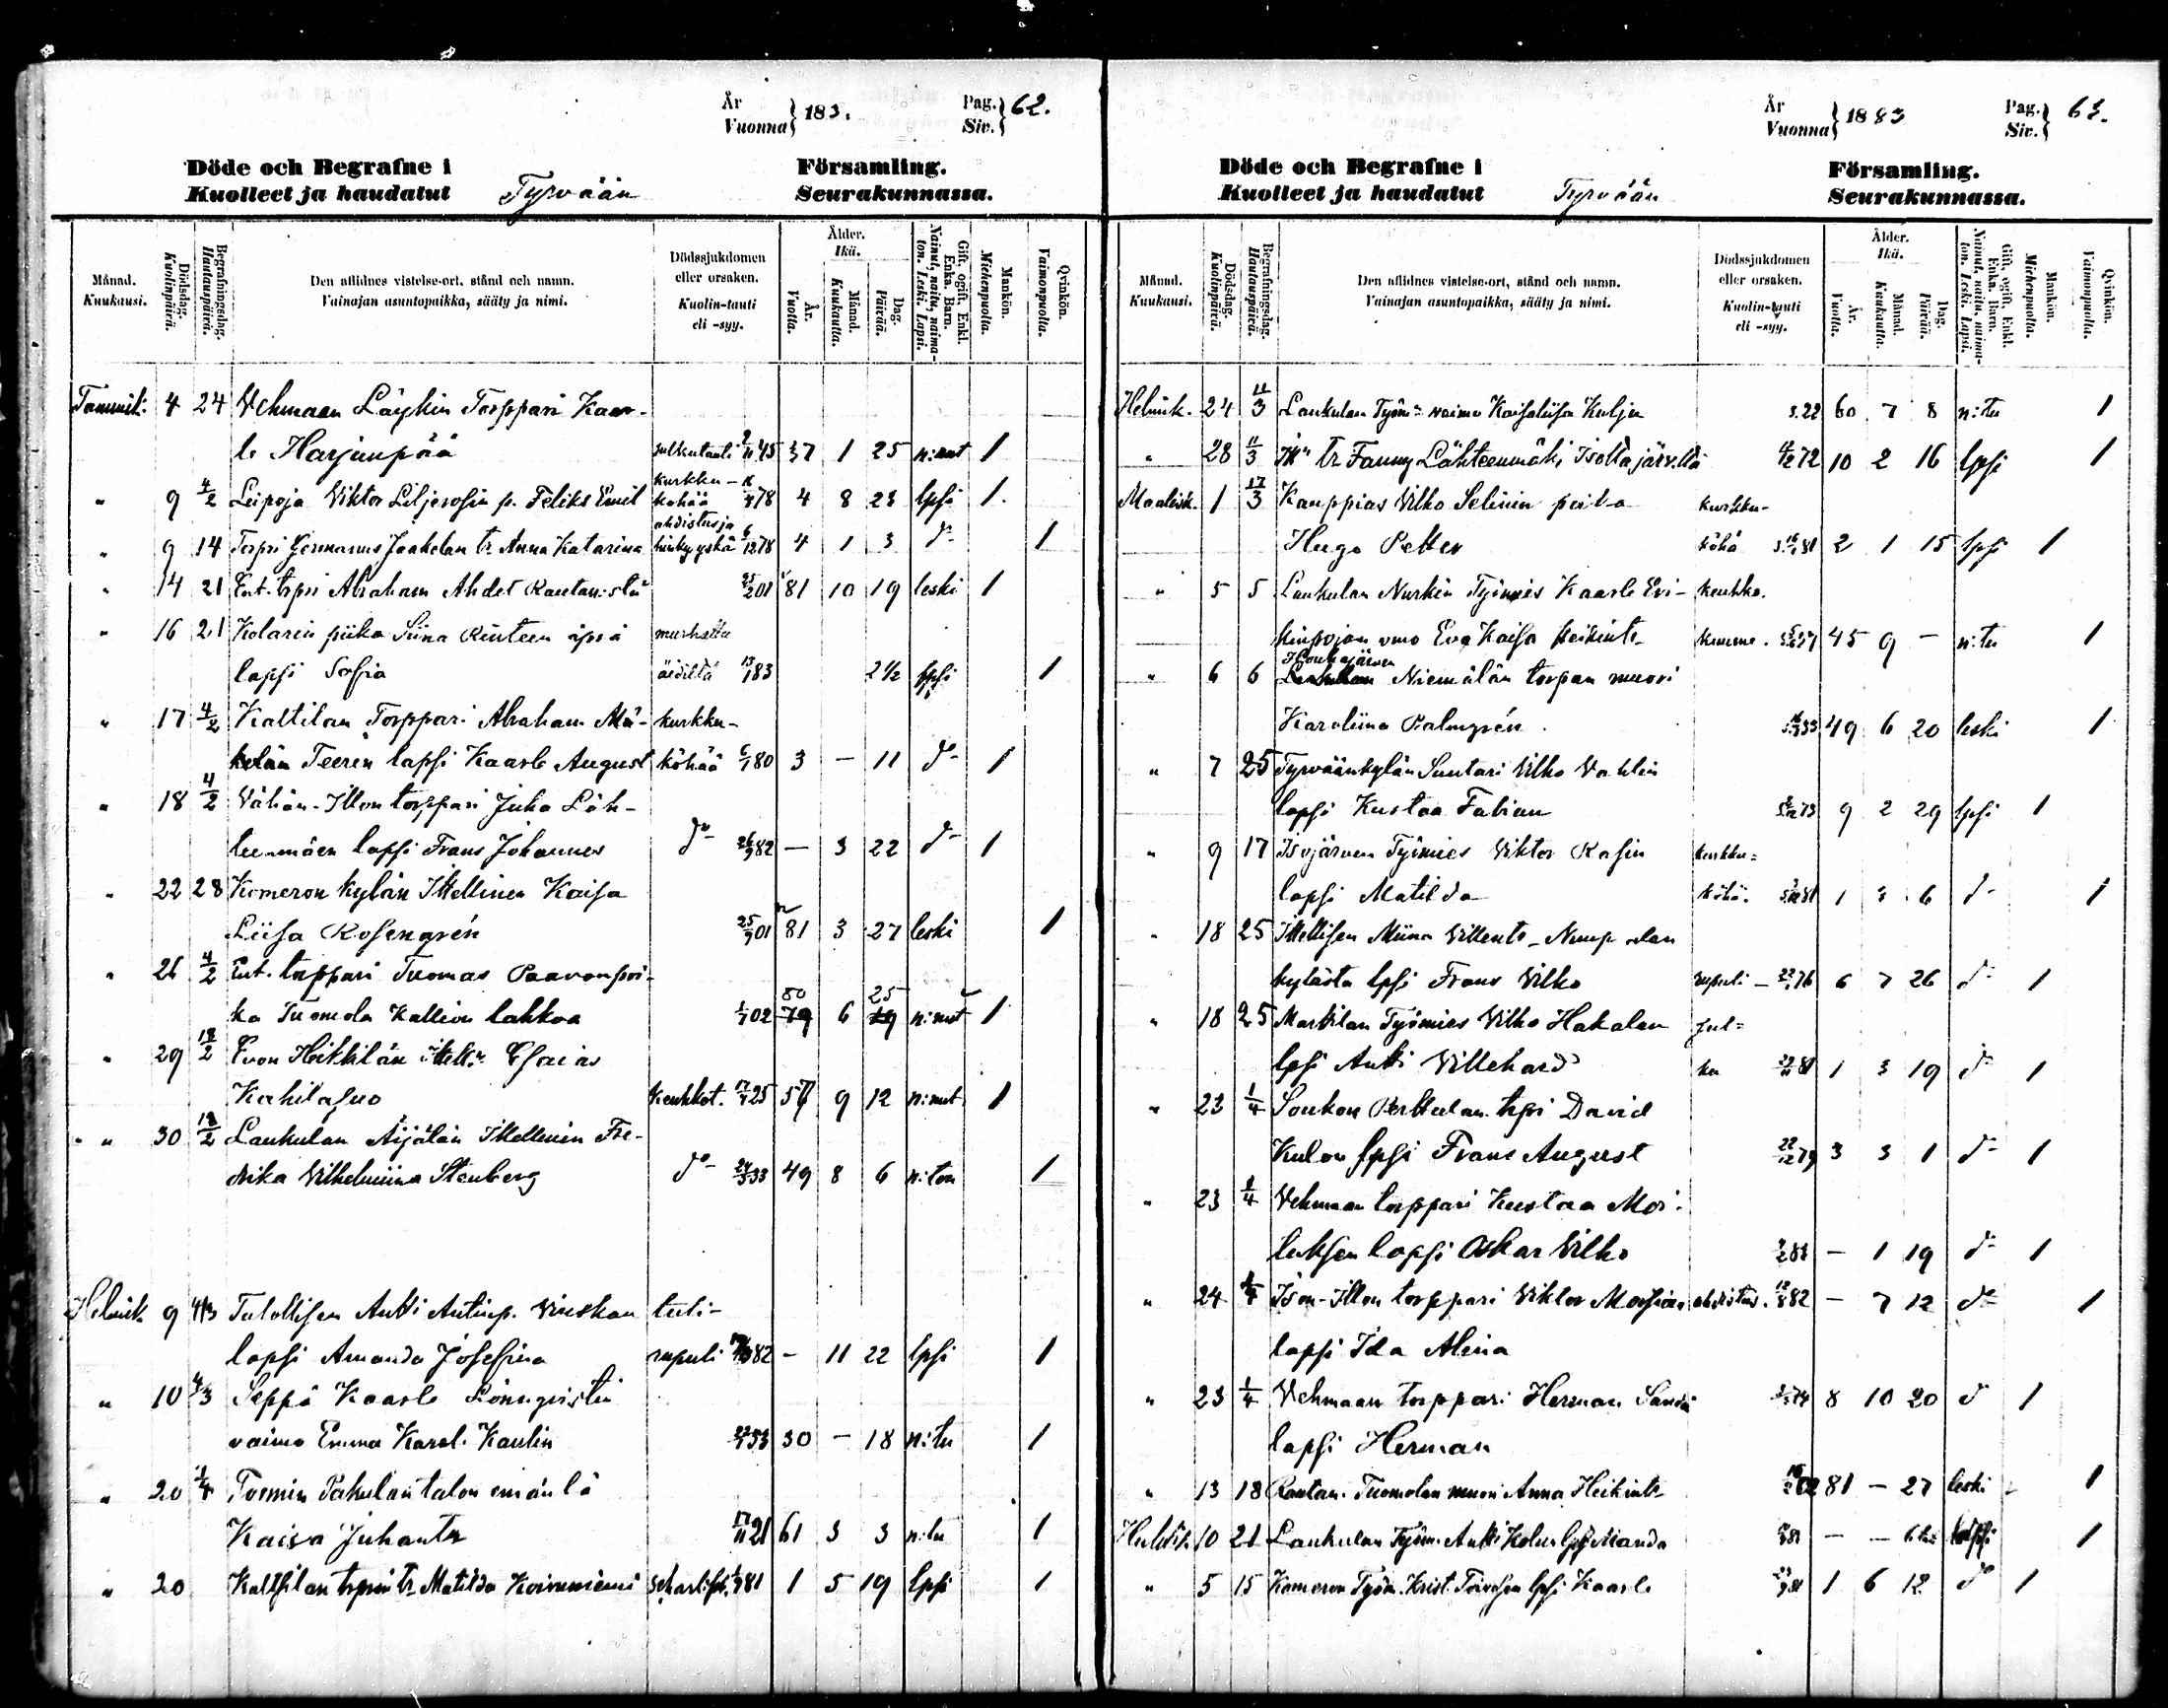 År
Vuonna } 183.
Pag.
Siv. } 62.
Döde och Begrafne i Församling.
Kuolleet ja haudatut Tyrvään Seurakunnassa.
Månad. Kuukausi.
Dödsdag. Kuolinpäivä.
Begrafningsdag. Hautauspäivä.
Den aflidnes vistelse-ort, stånd och namn.
Vainajan asuntopaikka, sääty ja nimi.
Dödssjukdomen eller orsaken.
Kuolin-tauti eli -syy.
Ålder. Ikä.
År. Vuotta.
Månad. Kuukautta.
Dag. Päivää.
Gift, ogift. Enkl. Enka. Barn.
Nainut, naitu, naimaton. Leski. Lapsi.
Mankön. Miehenpuolta.
Qvinkön. Vaimonpuolta.
Tammik. 4 24 Vehmaan Läykin Torppari Kaar-
le Harjunpää 2/11 45 37 1 25 n:nut 1
" 9 4/2 Leipoja Viktor Liljerosin p. Feliks Emil kurkku-köhää 78 4 8 23 lpsi 1.
" 9 14 Torpri Germanus Jaakolan tr Anna Katarina ahdistus ja hinkuyskä 6/12 78 4 1 3 do 1
" 14 21 Ent. trpri Abraham Ahdet Rautav:stä 25/2 01 81 10 19 leski 1
" 16 21 Kolarin piika Siina Rinteen äpärä murhattu
lapsi Sofia äidiltä 13/1 83 2½ lpsi 1
" 17 4/2 Kaltilan Torppari Abraham Mä- kurkku-
kelän Teeren lapsi Kaarle August köhää 6/1 80 3 — 11 do 1
" 18 4/2 Vähän-Illon torppari Juha Läh-
teenmäen lapsi Frans Johannes do 26/9 82 — 3 22 do 1
" 22 28 Komeron kylän Itellinen Kaisa
Liisa Rosengrén 25/9 01 81 3 27 leski 1
" 26 4/2 Ent. torppari Tuomas Paavonpoi-
ka Tuomola Kallion lahkoa 1/7 02 80 79 6 25 19 n:nut 1
" 29 18/2 Evon Heikkilän Itell:n Esaias
Kahilasuo Keuhkot. 17/4 25 57 9 12 n:nut 1
" 30 18/2 Laukulan Äijälän Itellinen Fre-
drika Vilhelmiina Stenberg do 24/5 33 49 8 6 n:ton 1
Helmik. 9 4/3 Tulollisen Antti Antinp. Vinskan tuli-
lapsi Amanda Josefina rupuli 82 — 11 22 lpsi 1
" 10 4/3 Seppä Kaarle Lönnqvistin
vaimo Emma Karol. Kaulin 53 30 — 18 n:tu 1
" 20 1/4 Tormin Pakulan talon emäntä
Kaisa Juhantr 17/11 21 61 3 3 n:tu 1
" 20 Kalttilan trprin tr Matilda Koivuniemi scharlist. 1/9 81 1 5 19 lpsi 1
År
Vuonna } 1883
Pag.
Siv. } 63.
Döde och Begrafne i Församling.
Kuolleet ja haudatut Tyrvään Seurakunnassa.
Månad. Kuukausi.
Dödsdag. Kuolinpäivä.
Begrafningsdag. Hautauspäivä.
Den aflidnes vistelse-ort, stånd och namn.
Vainajan asuntopaikka, sääty ja nimi.
Dödssjukdomen eller orsaken.
Kuolin-tauti eli -syy.
Ålder. Ikä.
År. Vuotta.
Månad. Kuukautta.
Dag. Päivää.
Gift, ogift. Enkl. Enka. Barn.
Nainut, naitu, naimaton. Leski. Lapsi.
Mankön. Miehenpuolta.
Qvinkön. Vaimonpuolta.
Helmik. 24 11/3 Laukulan Työm:n vaimo Kaisaliisa Kulju s. 22 60 7 8 n:tu 1
" 28 11/3 It:n tr Fanny Lähteenmäki Isolta järveltä 12/12 72 10 2 16 lpsi 1
Maalisk. 1 17/3 Kauppias Vilho Selinin poika kurkku-
Hugo Petter köhä 81 2 1 15 lpsi 1
" 5 5 Laukulan Nurkin Työmies Kaarle Eri- keuhko.
kinpojan vmo Eva Kaisa Heikintr kuume. 37 45 9 — n:tu 1
" 6 6 Houhajärven Laukulan Niemälän torpan muori
Karoliina Palmgrén 33 49 6 20 leski 1
" 7 25 Tyrväänkylän Suutari Vilho Vahlin
lapsi Kustaa Fabian 73 9 2 29 lpsi 1
" 9 17 Isojärven Työmies Viktor Rosin kurkku=
lapsi Matilda köhä. 81 1 3 6 do 1
" 18 25 Itellisen Miina Villentr - Nuupalan
kylästä lpsi Frans Vilho rupuli 22/7 76 6 7 26 do 1
" 18 25 Markilan Työmies Vilho Hakalan Jul=
lpsi Antti Villehard ku 81 1 3 19 do 1
" 23 1/4 Soukon Perttulan trpri David
Kulon lpsi Frans August 22/12 79 3 3 1 do 1
" 23 1/4 Vehmaan torppari Kustaa Moi-
luksen lapsi Oskar Vilho 83 — 1 19 do 1
" 24 1/4 Ison-Illon torppari Viktor Mossian ahdistus. 12/8 82 — 7 12 do 1
lapsi Ida Alina
" 23 1/4 Vehmaan torppari Herman Sandin 74 8 10 20 do 1
lapsi Herman
" 13 18 Rautav. Tuomolan muori Anna Heikintr 02 81 — 27 leski 1
Huhtik. 10 21 Laukulan Työm. Antti Kolun lpsi Manda — — lapsi 1
" 5 15 Komeron Työm. Krist. Toivosen lpsi Kaarle 81 1 6 12 do 1